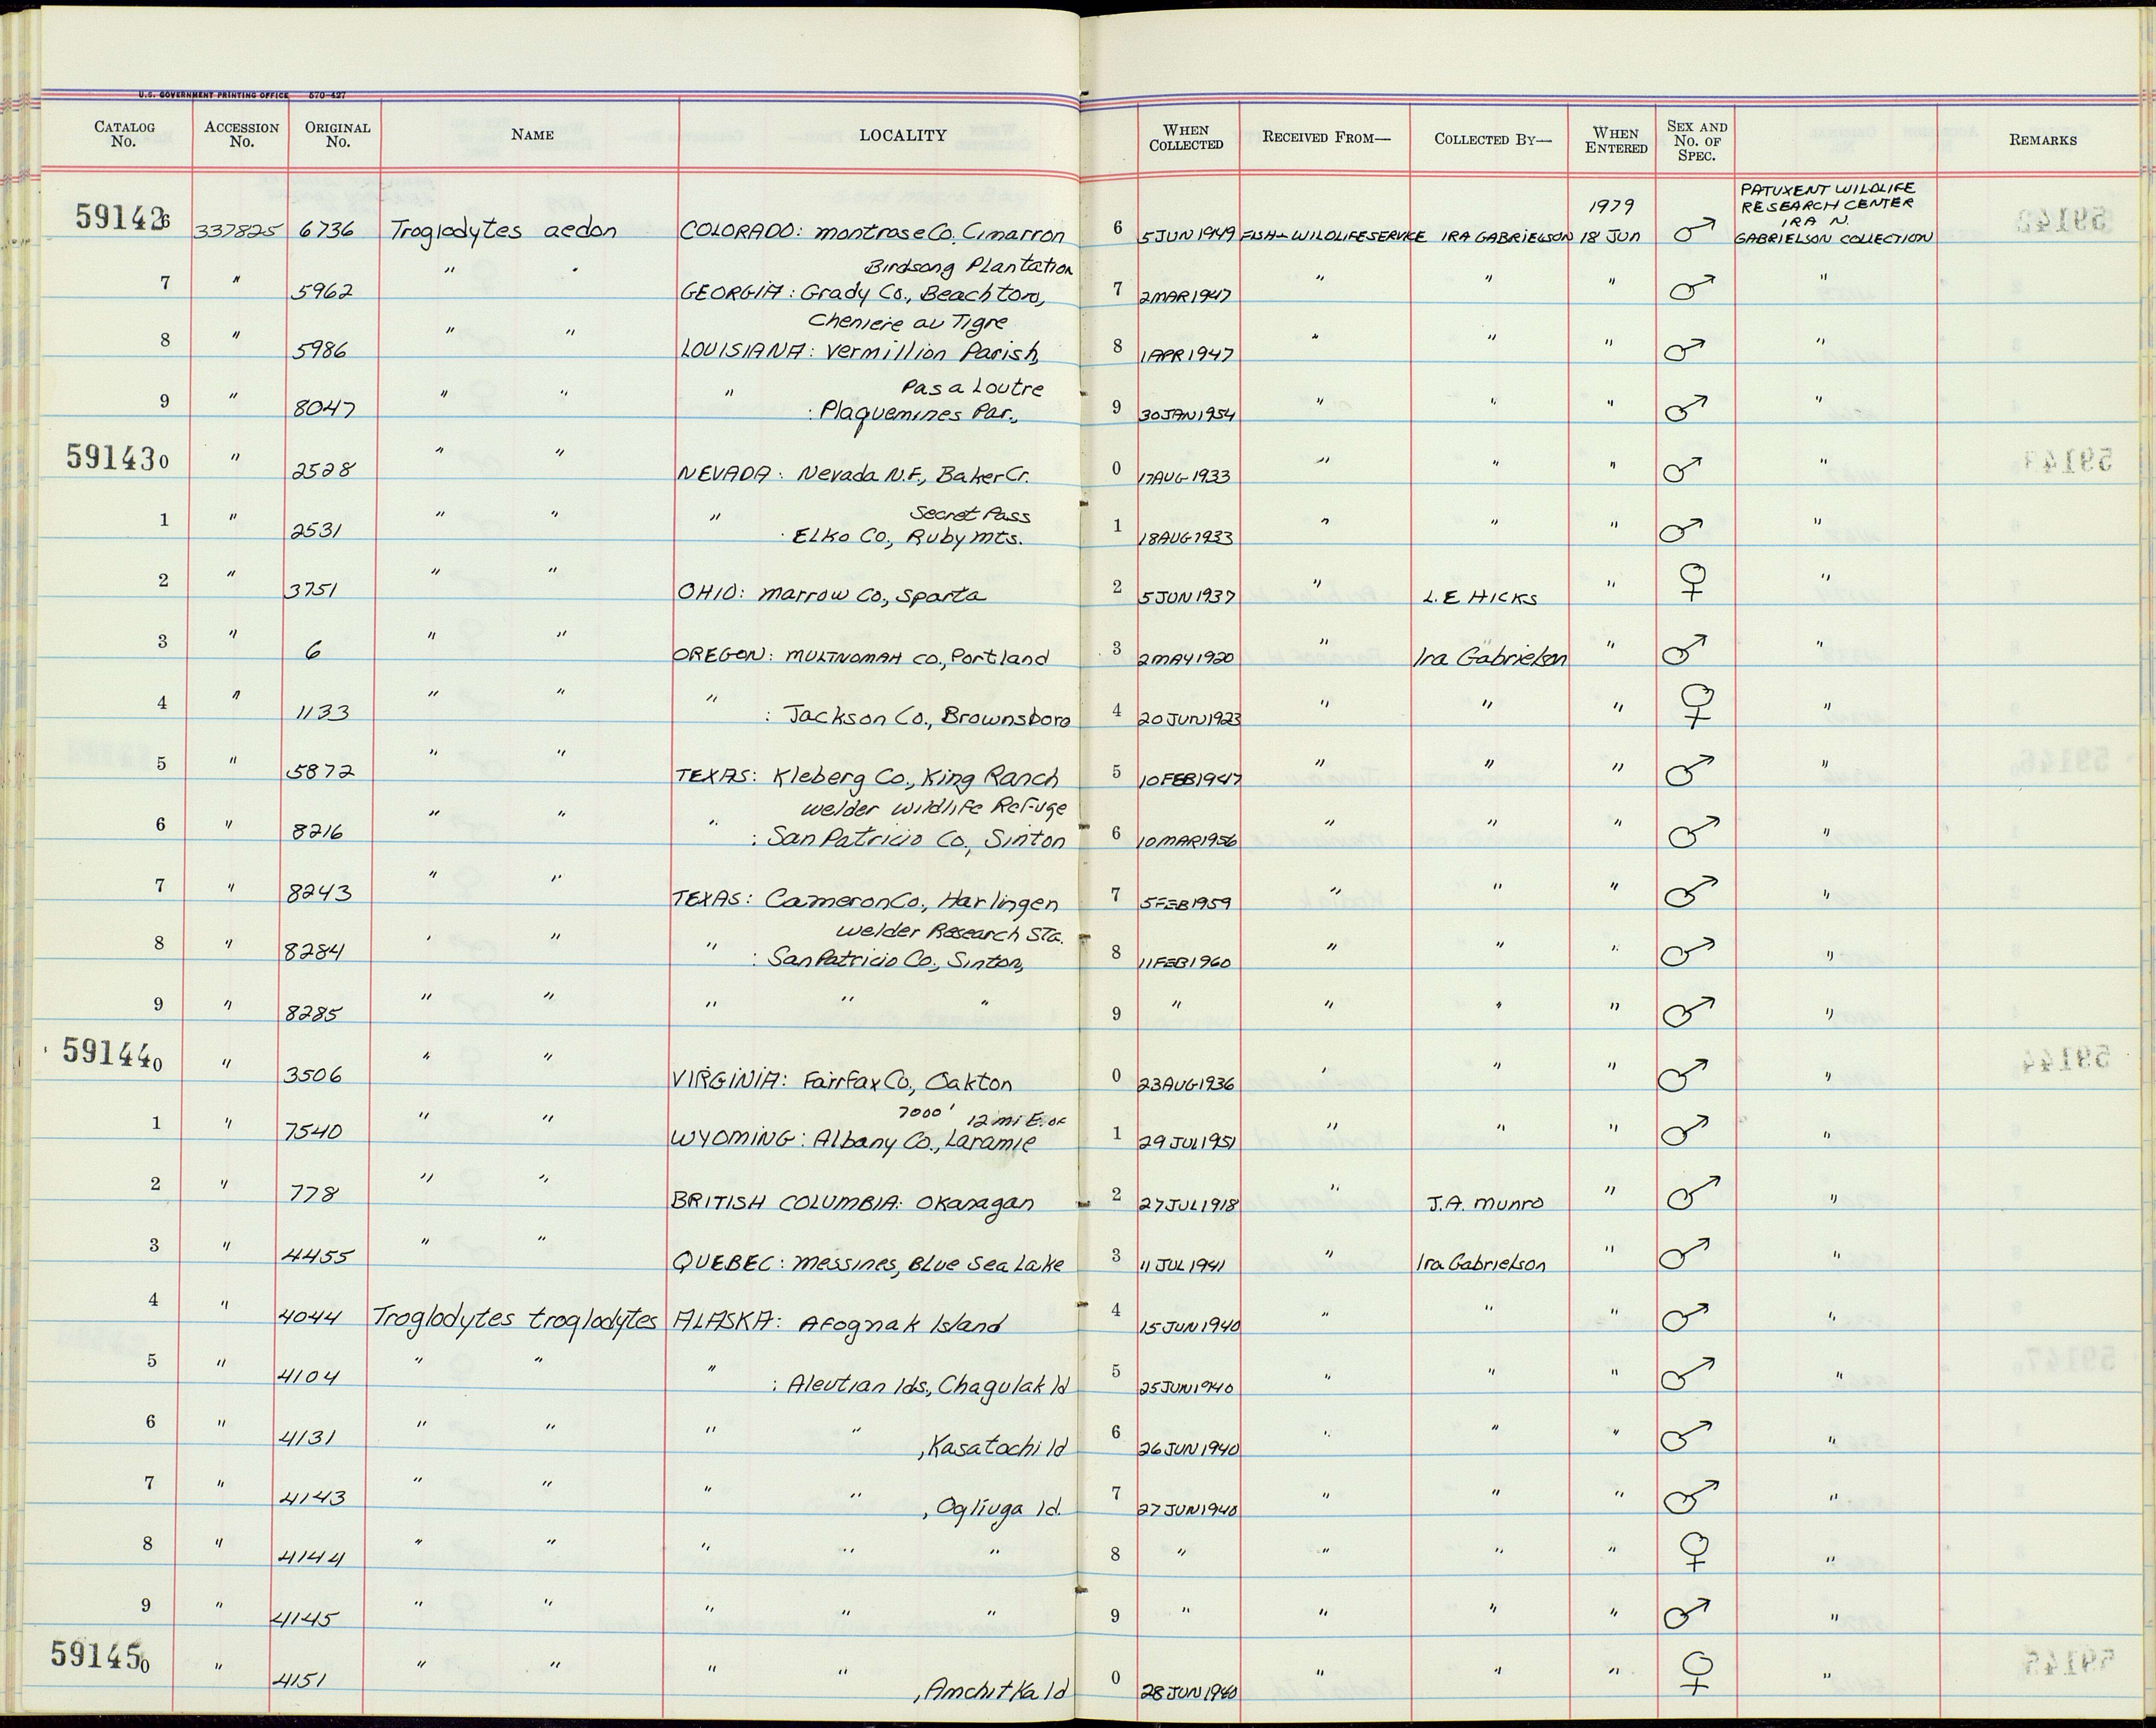 U.S. GOVERNMENT PRINTING OFFICE 570-427
CATALOG No. ACCESSION No. ORIGINAL No. NAME LOCALITY WHEN COLLECTED RECEIVED FROM— COLLECTED BY— WHEN ENTERED SEX AND No. OF SPEC. REMARKS
591426 337825 6736 Troglodytes aedon COLORADO: Montrose Co. Cimarron 6 5 JUN 1949 FISH + WILDLIFE SERVICE IRA GABRIELSON 1979 18 JUN ♂ PATUXENT WILDLIFE RESEARCH CENTER IRA N. GABRIELSON COLLECTION
7 " 5962 " " GEORGIA: Grady Co., Beachton, Birdsong Plantation 7 2 MAR 1947 " " " ♂ "
8 " 5986 " " LOUISIANA: Vermillion Parish, Cheniere au Tigre 8 1 APR 1947 " " " ♂ "
9 " 8047 " " " : Plaquemines Par., Pas a Loutre 9 30 JAN 1954 " " " ♂ "
591430 " 2528 " " NEVADA: Nevada N.F., Baker Cr. 0 17 AUG 1933 " " " ♂ "
1 " 2531 " " " : Elko Co., Ruby Mts. Secret Pass 1 18 AUG 1933 " " " ♂ "
2 " 3751 " " OHIO: Marrow Co., Sparta 2 5 JUN 1937 " L.E HICKS " ♀ "
3 " 6 " " OREGON: MULTNOMAH CO., Portland 3 2 MAY 1920 " Ira Gabrielson " ♂ "
4 " 1133 " " " : Jackson Co., Brownsboro 4 20 JUN 1923 " " " ♀ "
5 " 5872 " " TEXAS: Kleberg Co., King Ranch 5 10 FEB 1947 " " " ♂ "
6 " 8216 " " " : San Patricio Co., Sinton Welder Wildlife Refuge 6 10 MAR 1956 " " " ♂ "
7 " 8243 " " TEXAS: Cameron Co., Harlingen 7 5 FEB 1959 " " " ♂ "
8 " 8284 " " " : San Patricio Co., Sinton, Welder Research Sta. 8 11 FEB 1960 " " " ♂ "
9 " 8285 " " " " " 9 " " " " ♂ "
591440 " 3506 " " VIRGINIA: Fairfax Co., Oakton 0 23 AUG 1936 " " " ♂ "
1 " 7540 " " WYOMING: Albany Co., 7000' 12 mi E. of Laramie 1 29 JUL 1951 " " " ♂ "
2 " 778 " " BRITISH COLUMBIA: Okanagan 2 27 JUL 1918 " J.A. Munro " ♂ "
3 " 4455 " " QUEBEC: Messines, Blue Sea Lake 3 11 JUL 1941 " Ira Gabrielson " ♂ "
4 " 4044 Troglodytes troglodytes ALASKA: Afognak Island 4 15 JUN 1940 " " " ♂ "
5 " 4104 " " " : Aleutian Ids., Chagulak Id 5 25 JUN 1940 " " " ♂ "
6 " 4131 " " " " , Kasatochi Id 6 26 JUN 1940 " " " ♂ "
7 " 4143 " " " " , Ogliuga Id. 7 27 JUN 1940 " " " ♂ "
8 " 4144 " " " " " 8 " " " " ♀ "
9 " 4145 " " " " " 9 " " " " ♂ "
591450 " 4151 " " " " , Amchitka Id 0 28 JUN 1940 " " " ♀ "